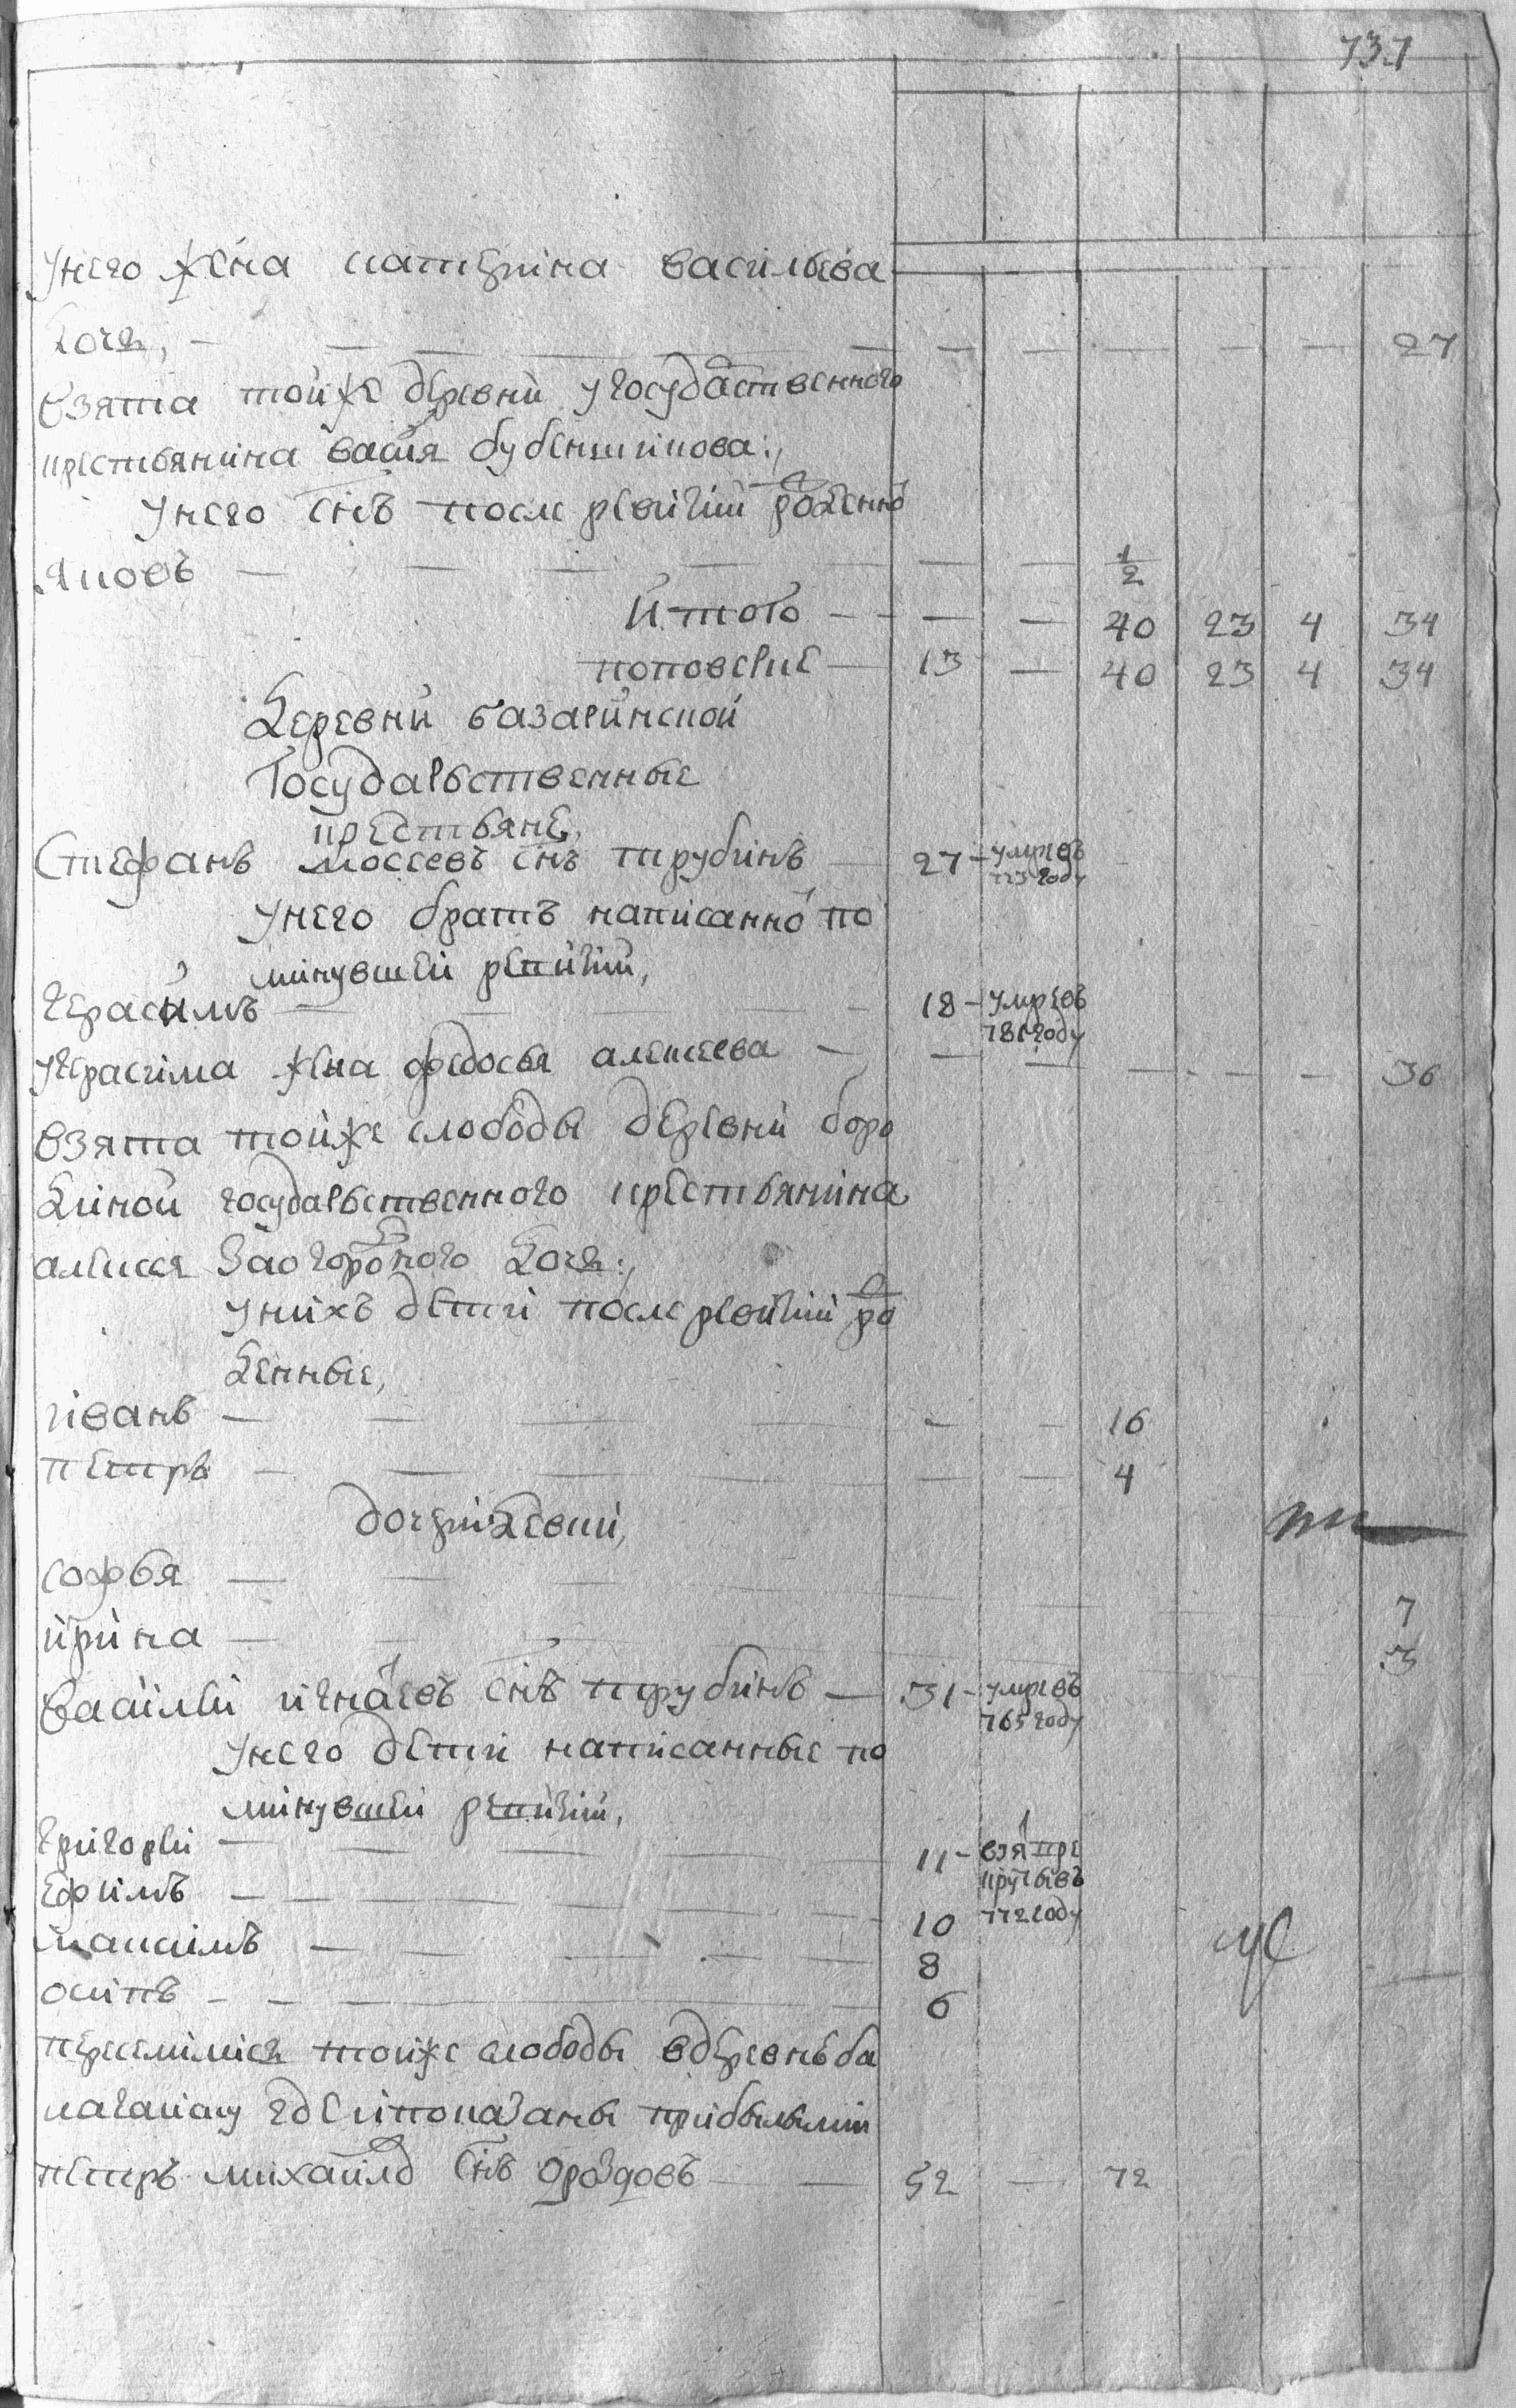 737
унего жена катерина васильева
дочя, 27
взята тойже деревни угосударственного
крестьянина васия бубенщикова:,
унего снъ после ревизии рожденно
яковъ ½
итого 40 23 4 34
поповские 13 40 23 4 34
деревни базаринской
государьственные
крестьяне,
стефанъ мосеевъ снъ трубинъ 27 умре въ
году
унего братъ написанно по
минувшей ревизии,
герасимъ 18 умре въ
781 году
угерасима жена федосья алексеева 36
взята тойже слободы деревни боро
диной государьственного крестьянина
алексея заогородного дочя:,
унихъ дети после ревизии ро
жденные,
иванъ 16
петръ 4
дочери девки,
софья 7
ирина 3
василей игнатевъ снъ трубинъ 31 умре въ
765 году
унего дети написанные по
минувшей ревизии,
григорей 11 взят вре
круты въ
ефимъ 10 772 году
максимъ 8
осипъ 6
переселились тойже слободы вдеревнь ба
где и показаны прибылыми
петръ михаиловъ снъ дроздовъ 52 72